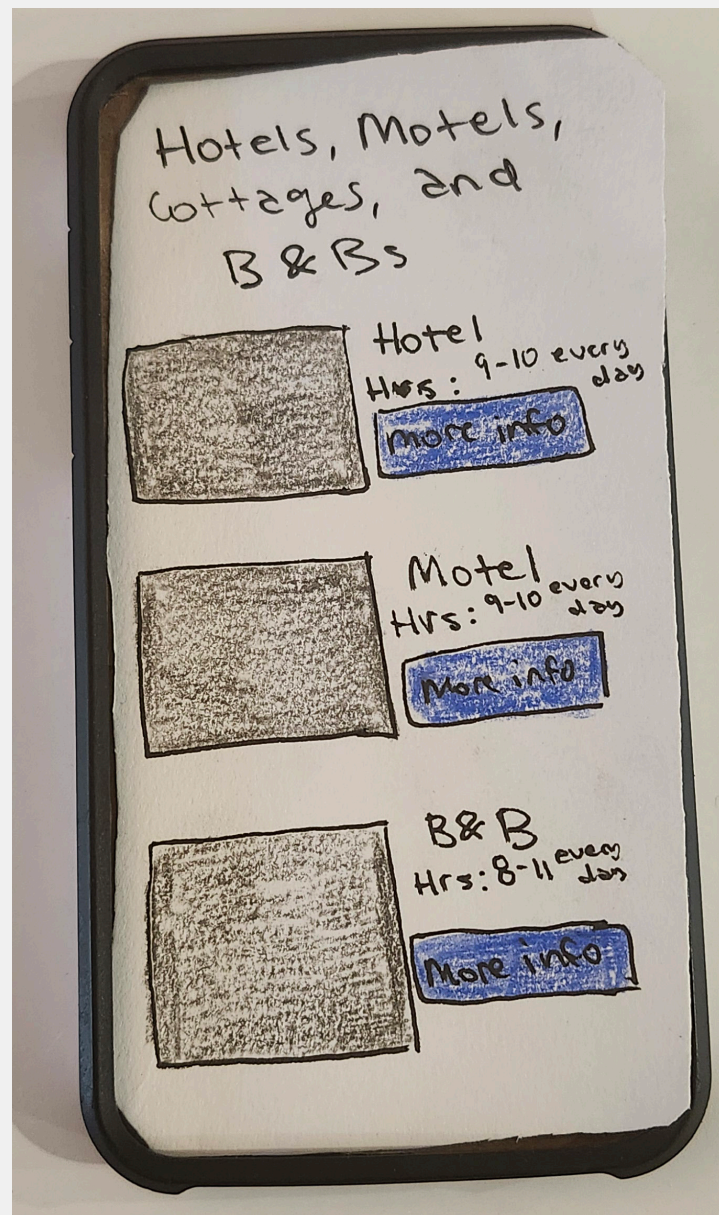 Hotels, Motels,
Cottages, and
B & Bs
Hotel
Hrs: 9-10 every day
more info
Motel
Hrs: 9-10 every day
More info
B & B
Hrs: 8-11 every day
More info